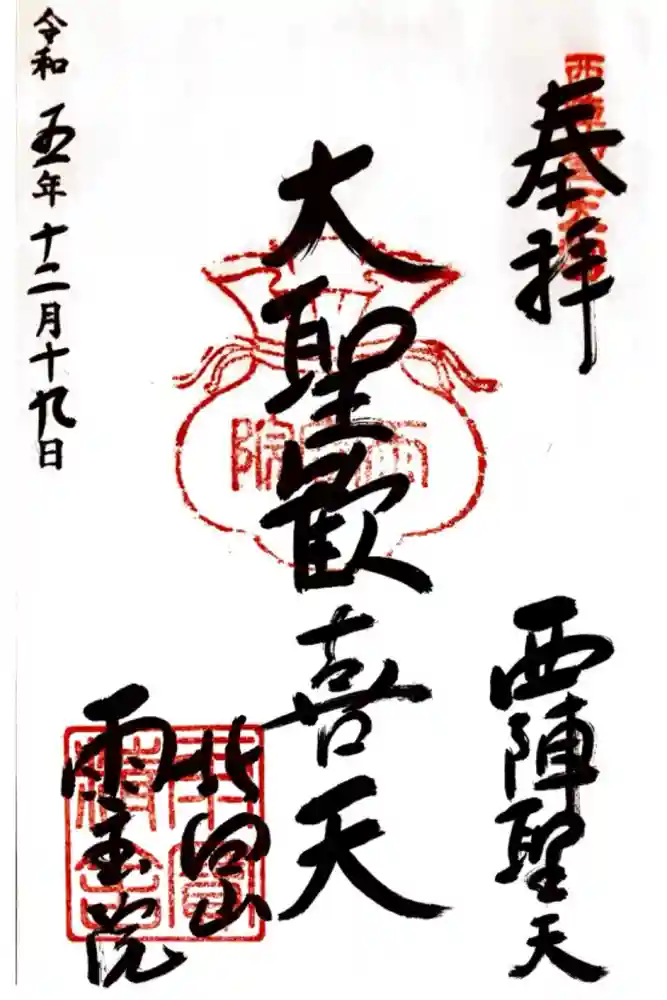 奉拝
西陣聖天
大聖歓喜天
北向山
雨宝院
令和五年十二月十九日